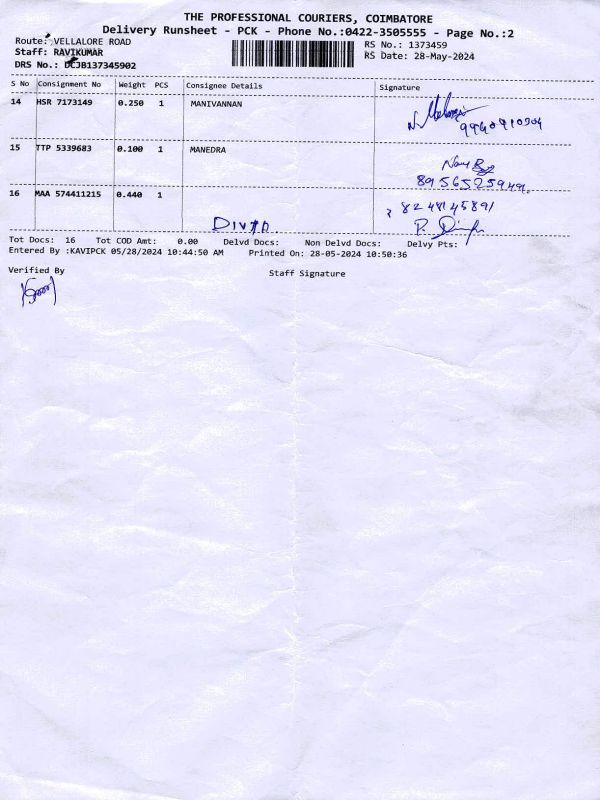 THE PROFESSIONAL COURIERS, COIMBATORE
Delivery Runsheet - PCK - Phone No.:0422-3505555 - Page No.:2
Route: VELLALORE ROAD
RS No.: 1373459
Staff: RAVIKUMAR
RS Date: 28-May-2024
DRS No.: DCJB137345902
S No Consignment No Weight PCS Consignee Details Signature
14 HSR 7173149 0.250 1 MANIVANNAN
15 TTP 5339683 0.100 1 MANEDRA
16 MAA 574411215 0.440 1
Tot Docs: 16 Tot COD Amt: 0.00 Delvd Docs: Non Delvd Docs: Delvy Pts:
Entered By :KAVIPCK 05/28/2024 10:44:50 AM Printed On: 28-05-2024 10:50:36
Verified By Staff Signature